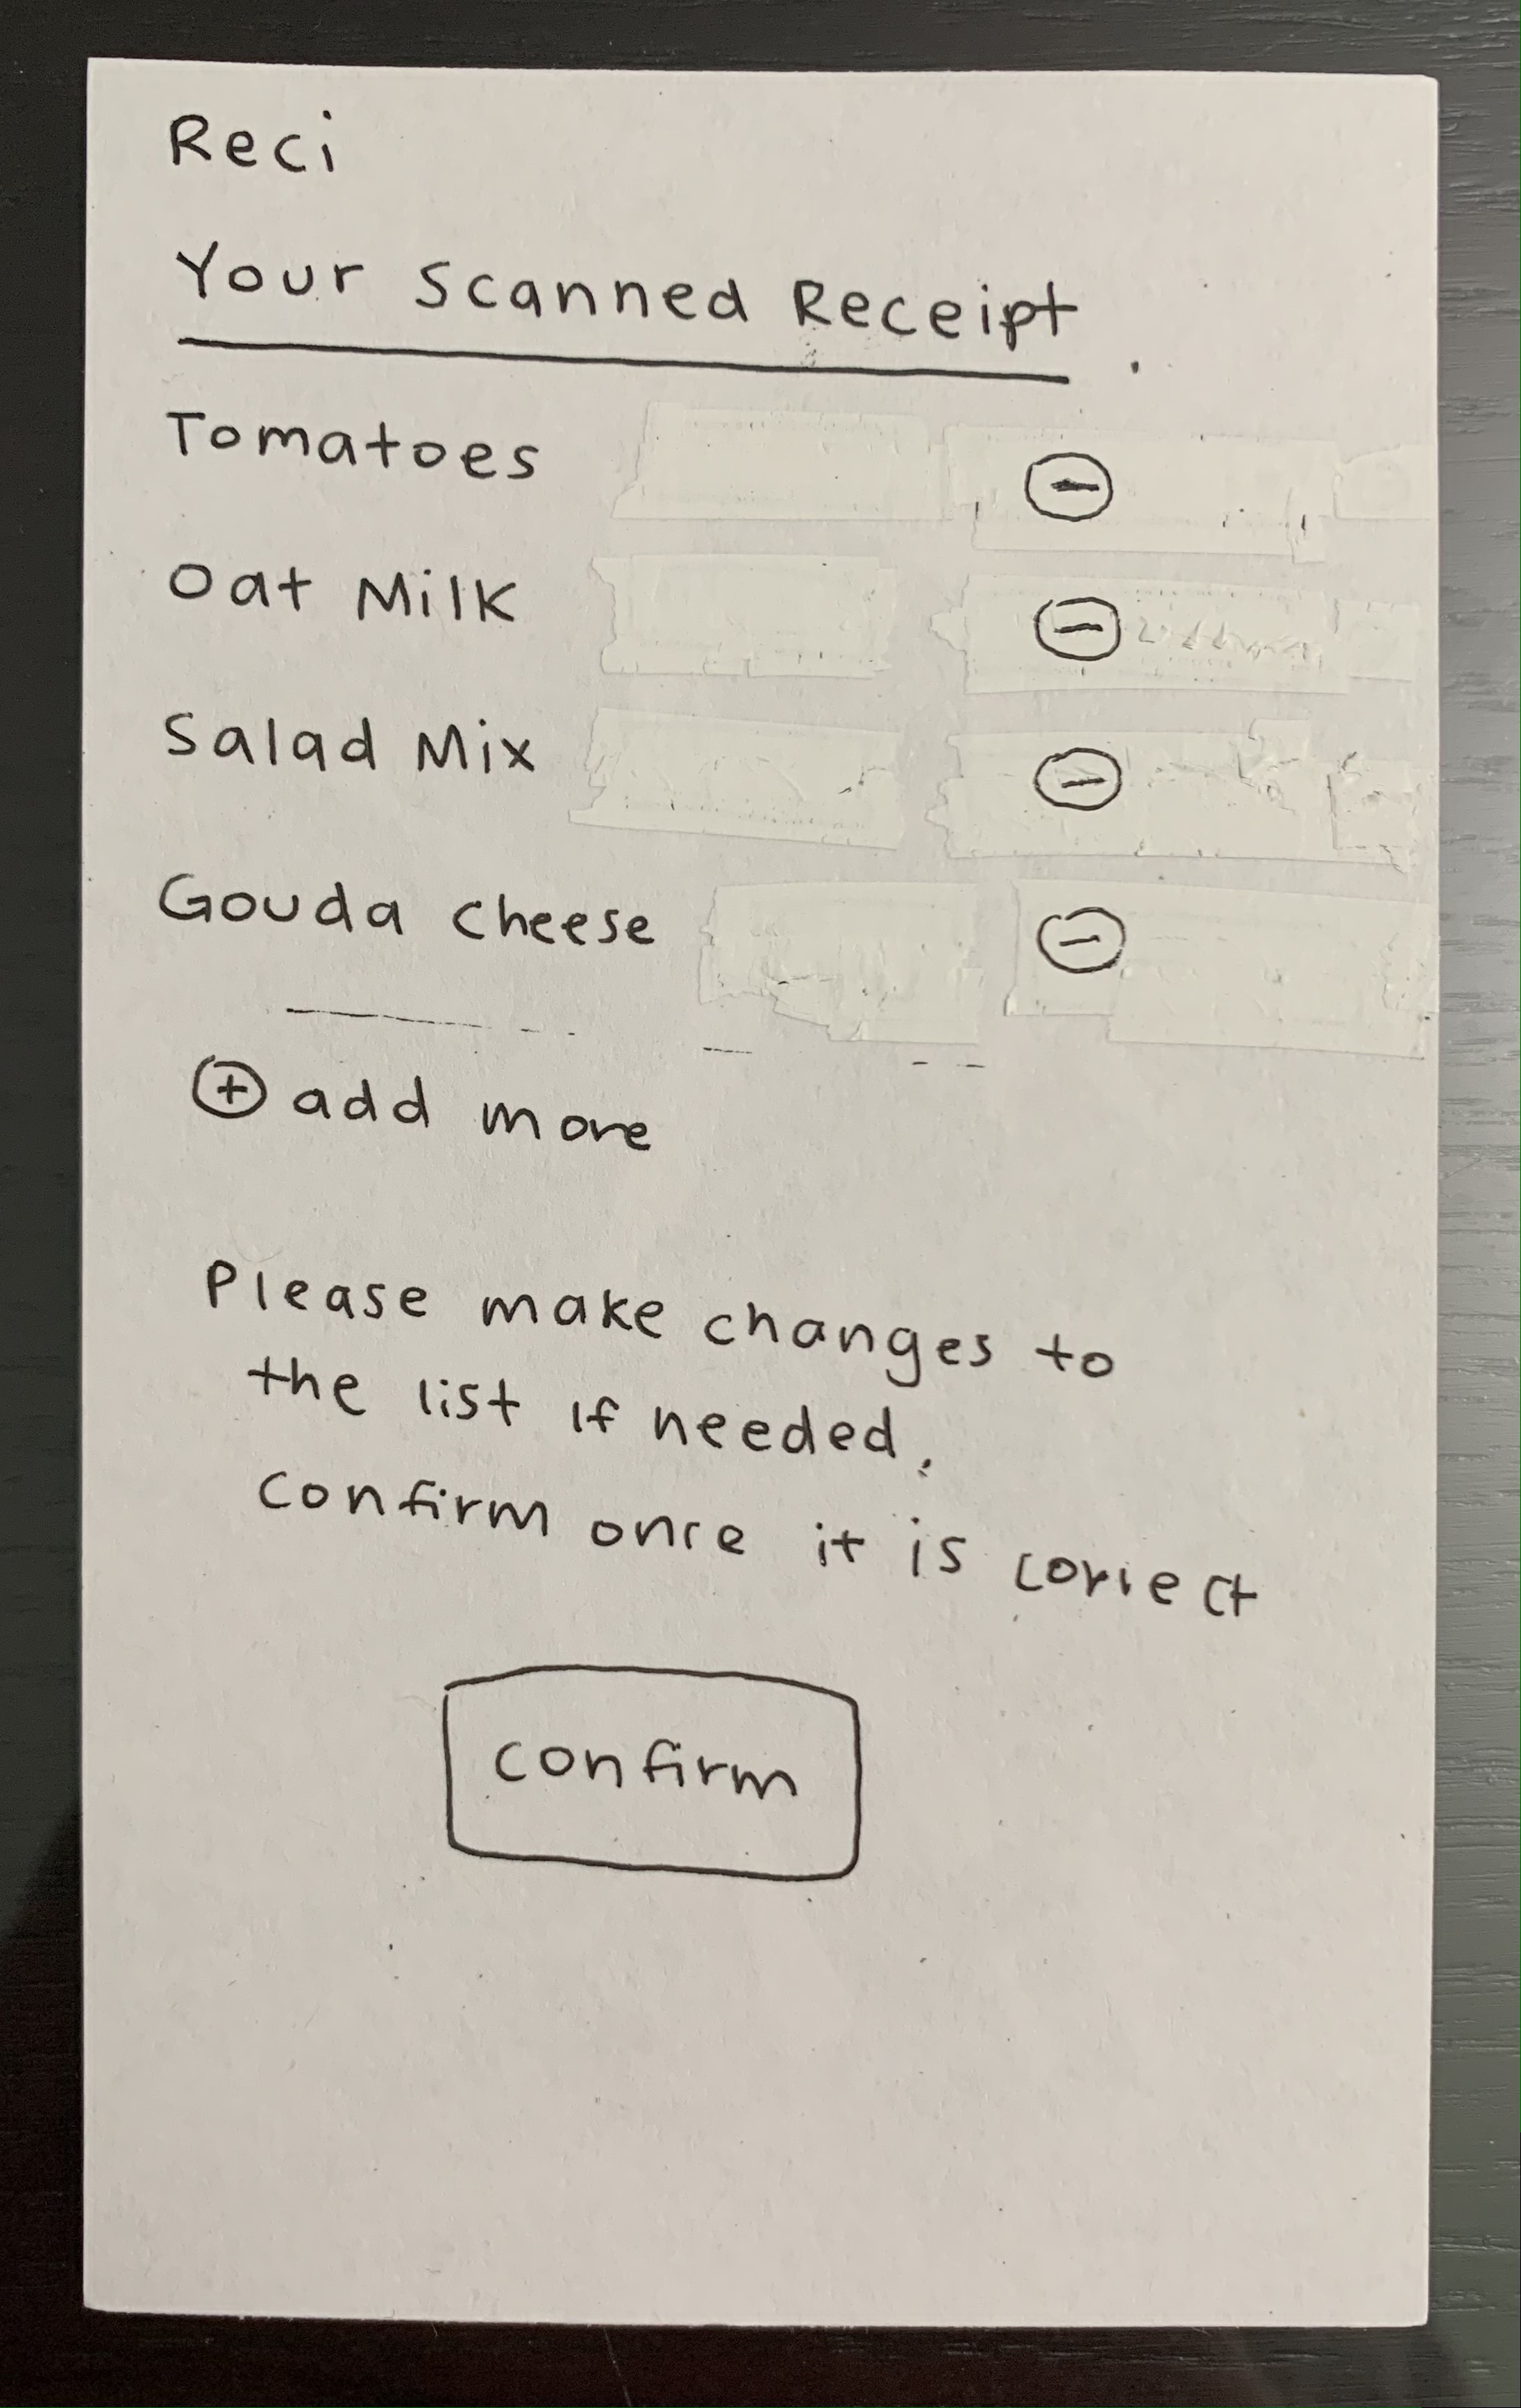 Reci
Your Scanned Receipt
Tomatoes ⊖
Oat Milk ⊖
Salad Mix ⊖
Gouda cheese ⊖
⊕ add more
Please make changes to
the list if needed.
Confirm once it is correct
confirm